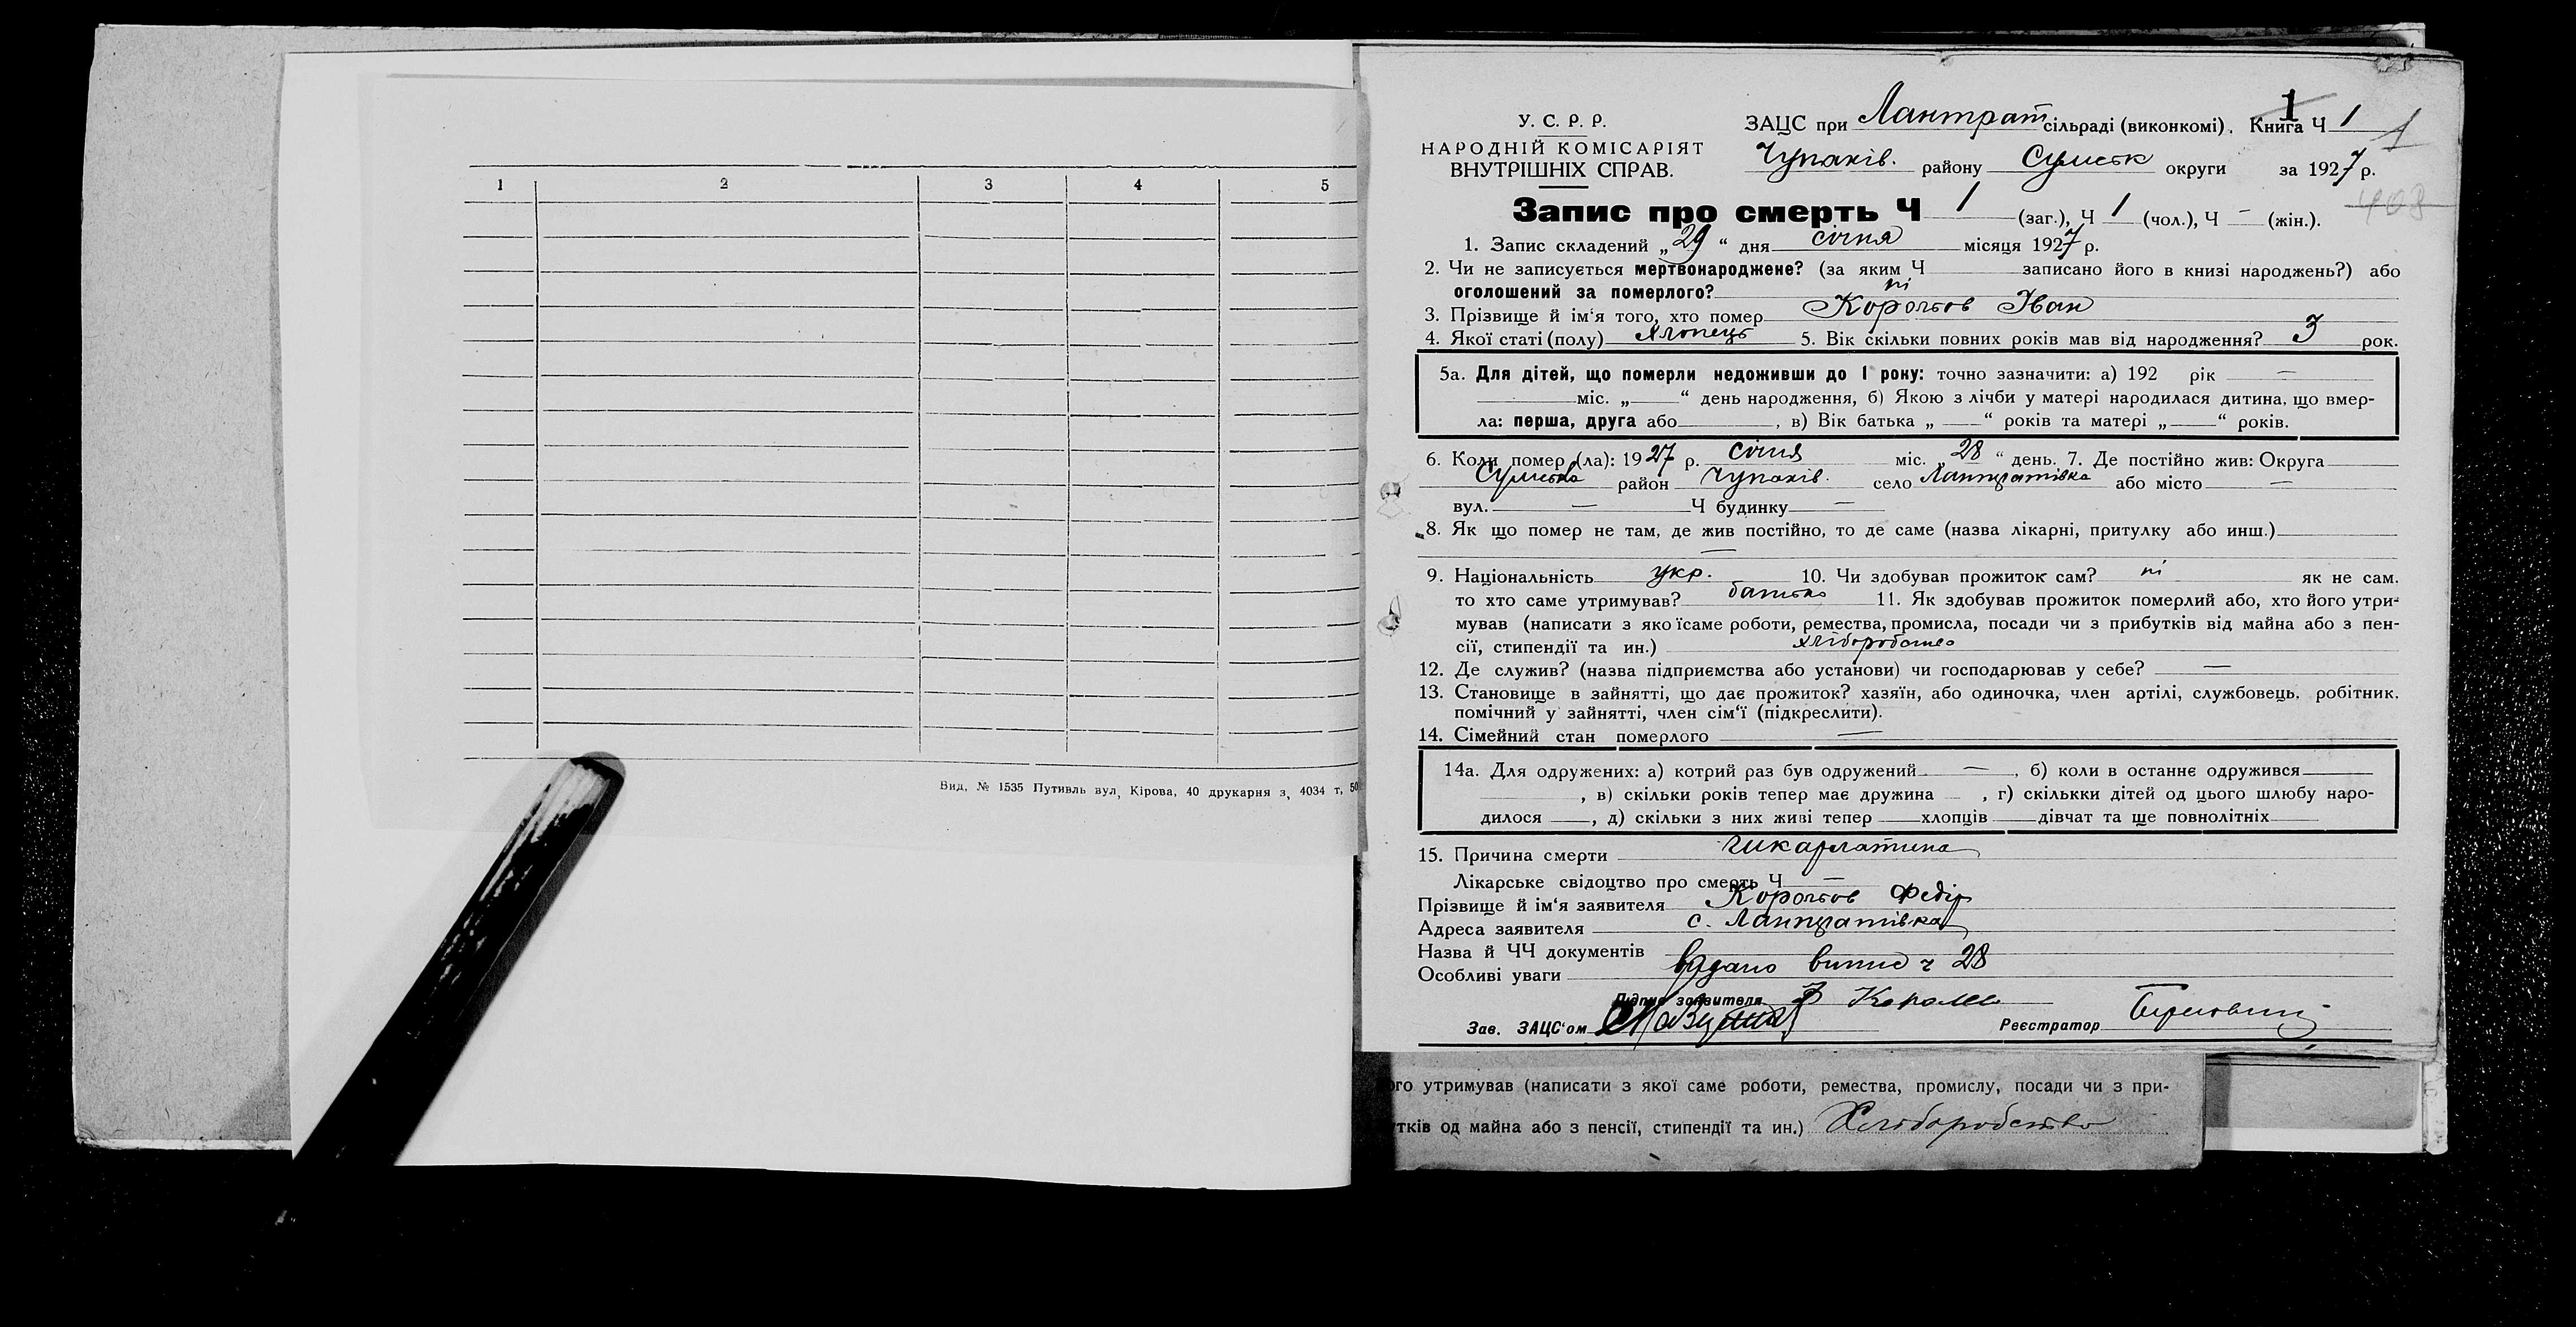 1 2 3 4 5
Вид. № 1535 Путивль вул. Кірова, 40 друкарня з. 4034 т. 50
У. С. Р. Р.
НАРОДНІЙ КОМІСАРІЯТ
ВНУТРІШНІХ СПРАВ.
ЗАЦС при Лантрат сільраді (виконкомі). Книга Ч 1
1
1
Чупахів. району Сумськ округи за 1927 р.
408
Запис про смерть Ч 1 (заг.), Ч 1 (чол.), Ч — (жін.).
1. Запис складений „29“ дня січня місяця 1927 р.
2. Чи не записується мертвонароджене? (за яким Ч записано його в книзі народжень?) або
оголошений за померлого? ні
3. Прізвище й ім‘я того, хто помер Корольов Іван
4. Якої статі (полу) хлопець 5. Вік скільки повних років мав від народження? 3 рок.
5а. Для дітей, що померли недоживши до 1 року: точно зазначити: а) 192 рік —
міс. „ “ день народження, б) Якою з лічби у матері народилася дитина, що вмер-
ла: перша, друга або , в) Вік батька „ “ років та матері „ “ років.
6. Коли помер (ла): 1927 р. січня міс. „28“ день. 7. Де постійно жив: Округа
Сумська район Чупахів. село Лантратівка або місто —
вул. — Ч будинку —
8. Як що помер не там, де жив постійно, то де саме (назва лікарні, притулку або инш.)
—
9. Національність укр. 10. Чи здобував прожиток сам? ні як не сам.
то хто саме утримував? батько 11. Як здобував прожиток померлий або, хто його утри-
мував (написати з якоїсаме роботи, ремества, промисла, посади чи з прибутків від майна або з пен-
сії, стипендії та ин.) хліборобство
12. Де служив? (назва підприємства або установи) чи господарював у себе? —
13. Становище в зайнятті, що дає прожиток? хазяїн, або одиночка, член артілі, службовець. робітник.
помічний у зайнятті, член сім‘ї (підкреслити).
14. Сімейний стан померлого —
14а. Для одружених: а) котрий раз був одружений —, б) коли в останнє одружився
, в) скільки років тепер має дружина , г) скількки дітей од цього шлюбу наро-
дилося , д) скільки з них живі тепер хлопців дівчат та ще повнолітніх
15. Причина смерти шкарлатина
Лікарське свідоцтво про смерть Ч —
Прізвище й ім‘я заявителя Корольов Федір
Адреса заявителя с. Лантратівка
Назва й ЧЧ документів
Особливі уваги видано випис ч 28
Підпис заявителя Ф Королев
Зав. ЗАЦС‘ом Реєстратор
ого утримував (написати з якої саме роботи, ремества, промислу, посади чи з при-
тків од майна або з пенсії, стипендії та ин.) Хліборобство